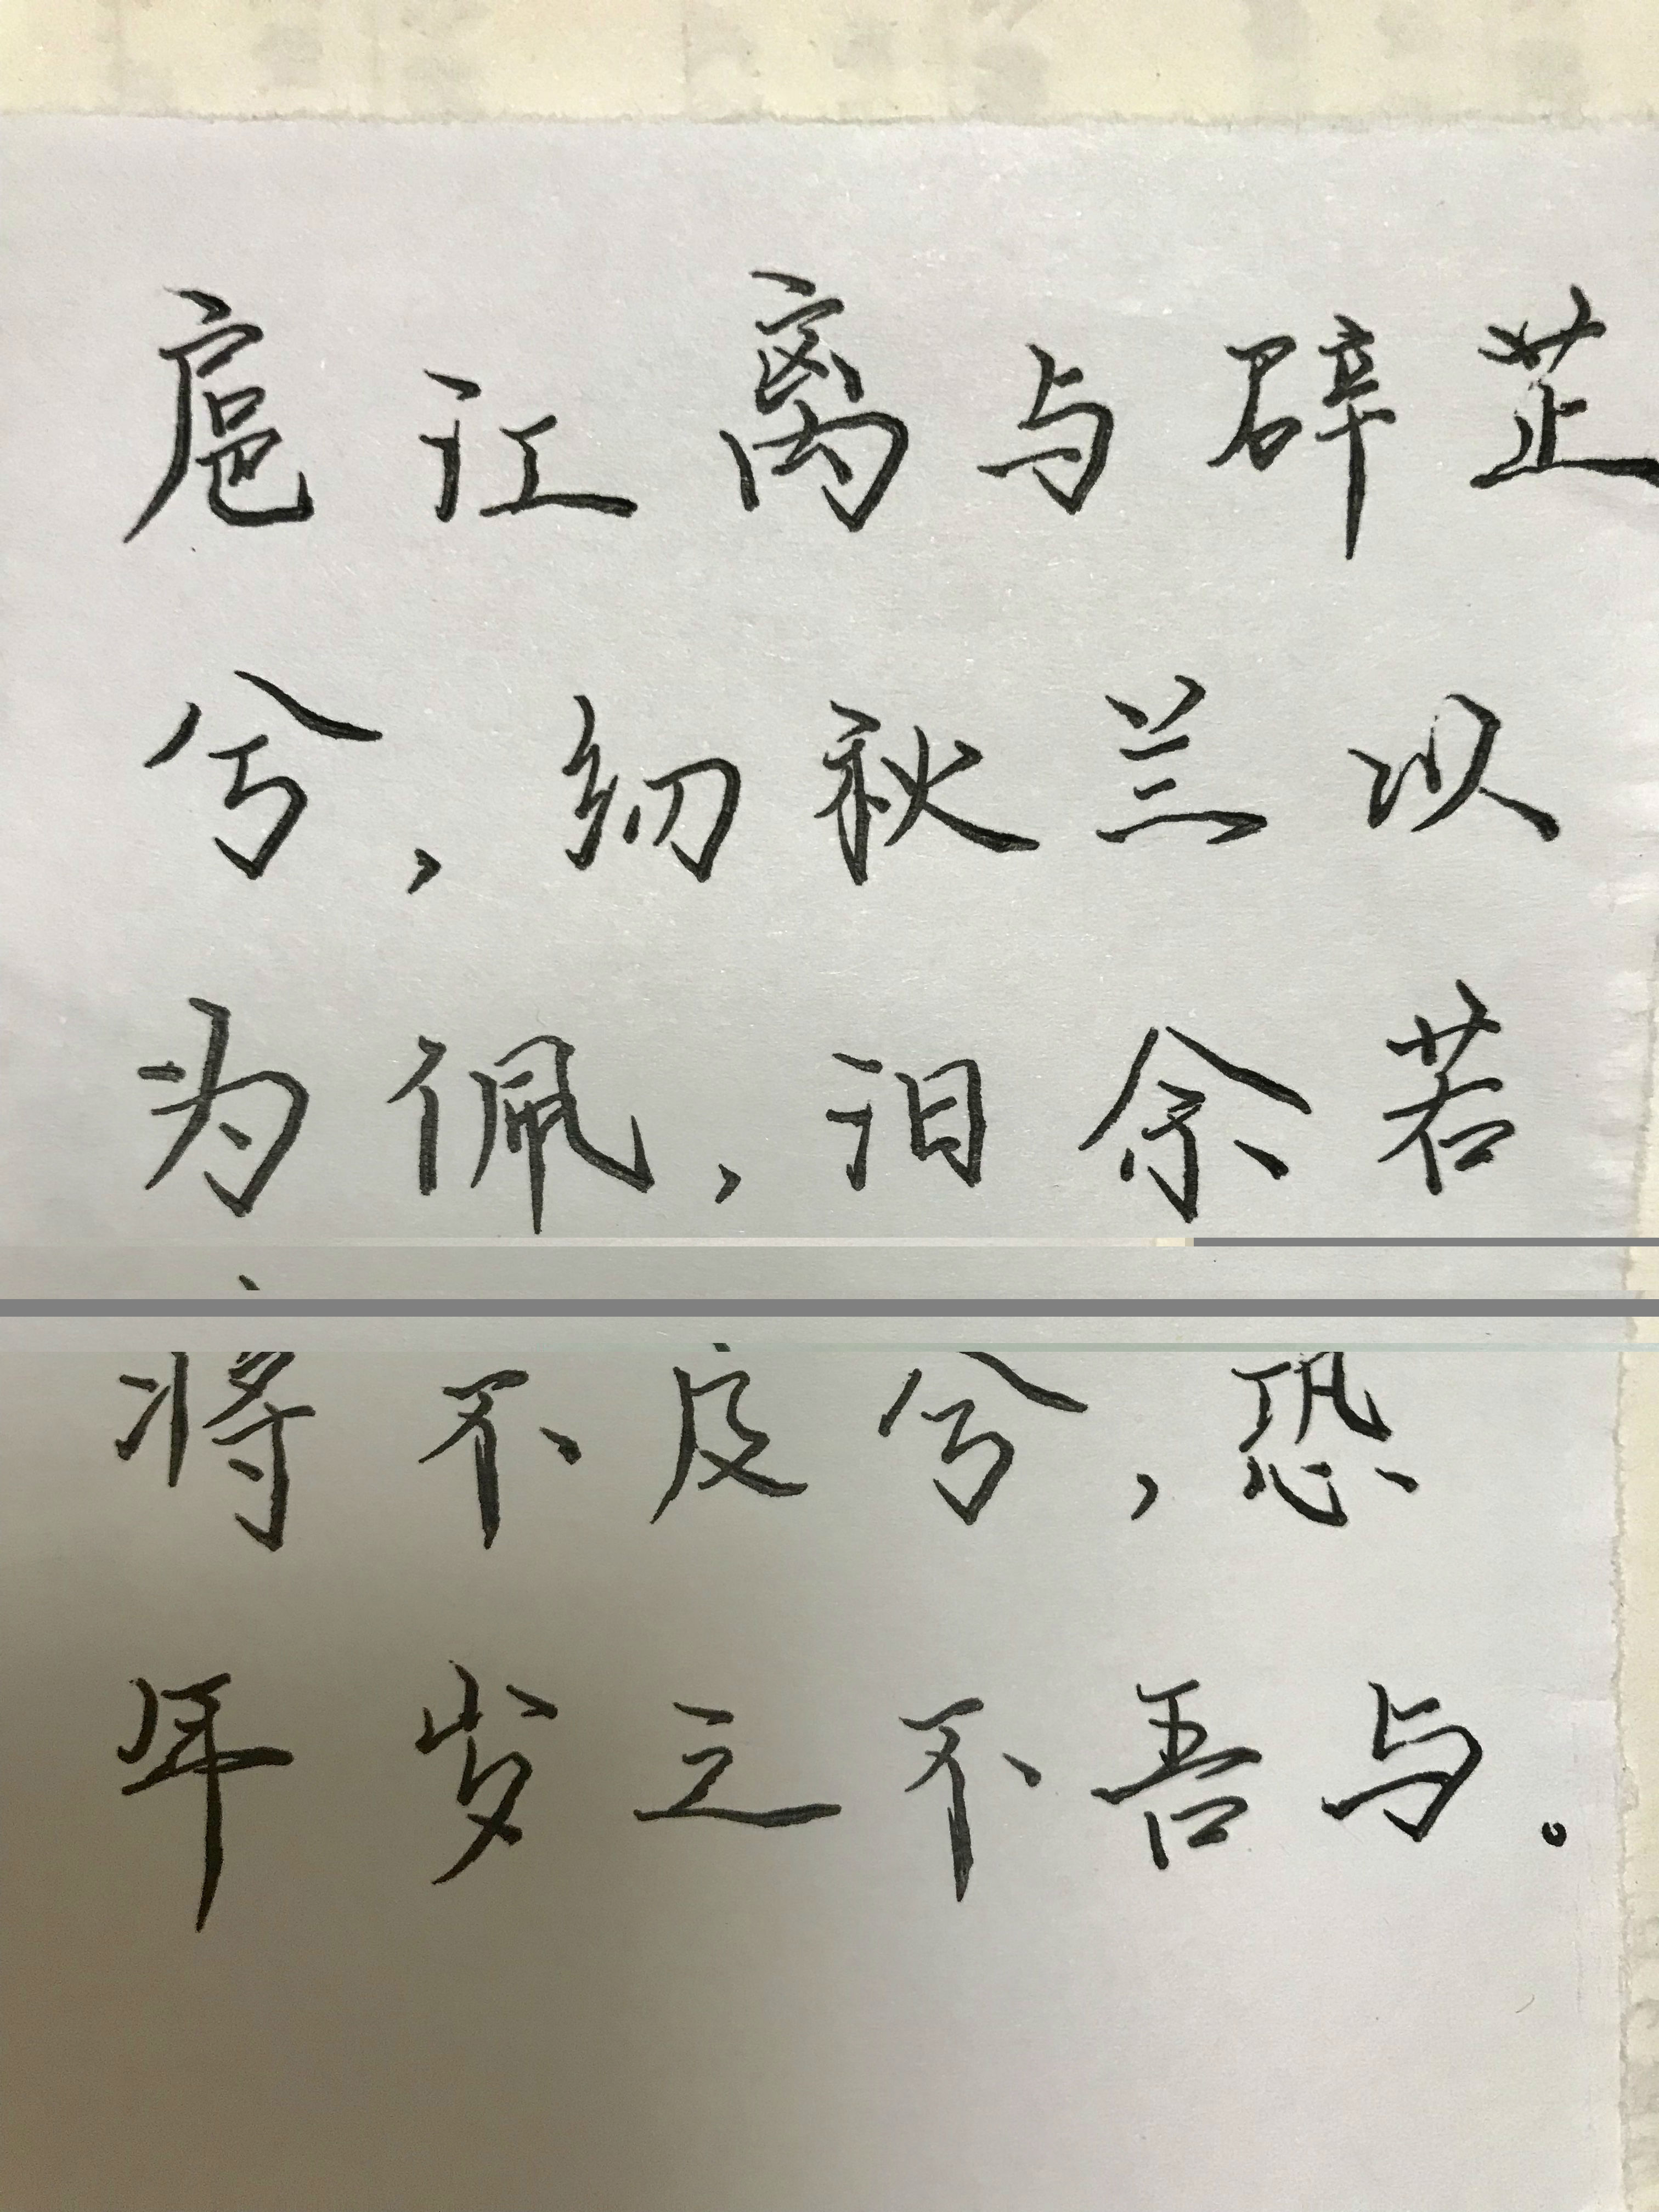 扈江离与辟芷
兮，纫秋兰以
为佩，汩余若
将不及兮，恐
年岁之不吾与。